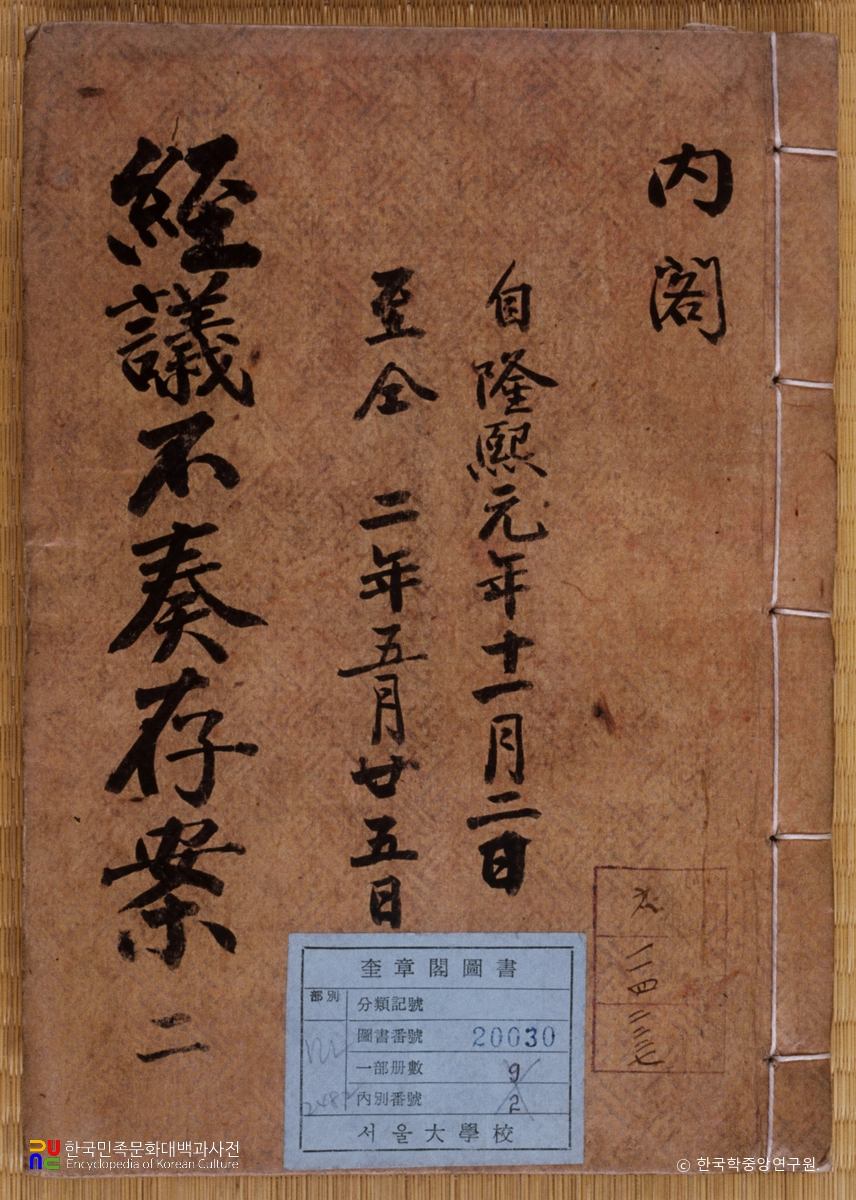 内閣
自隆熙元年十一月二日
至仝 二年五月廿五日
經議不奏存案 二
奎章閣圖書
部別
分類記號
圖書番號 20030
一部册數 9
內別番號 2
서울大學校
一一四
二三三七
한국민족문화대백과사전
Encyclopedia of Korean Culture
© 한국학중앙연구원